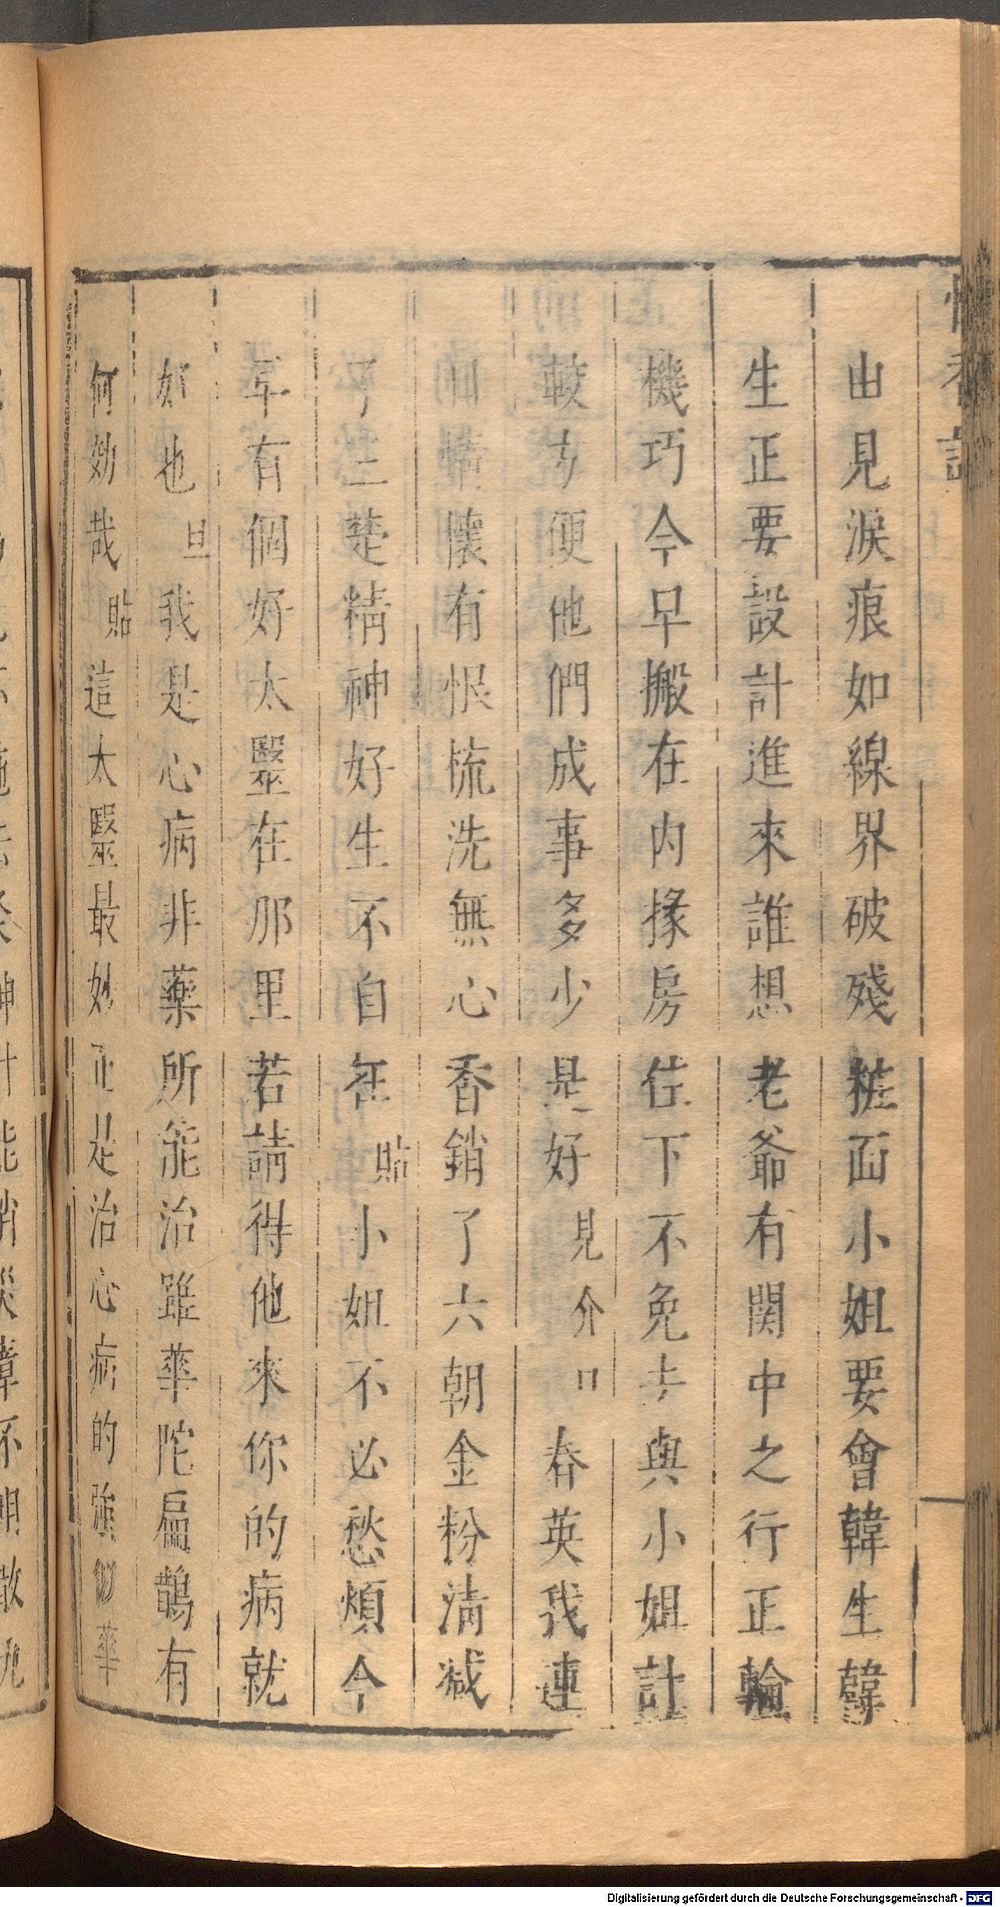 香記
山見淚痕如線界破殘粧面小姐要會韓生韓
生正要設計進來誰想老爺有関中之行正輪
機巧今早搬在内掾房住下不免去與小姐計
較方便他們成事多少是好見介口春英我連
情懷有恨梳洗無心香銷了六朝金粉清减
了三楚精神好生不自在貼小姐不必愁煩今
年有個好太醫在那里若請得他來你的病就
好也旦我是心病非藥所能治雖華陀扁鵲有
何妙哉貼這太醫最妙正是治心病的強似華
Digitalisierung gefördert durch die Deutsche Forschungsgemeinschaft - DFG